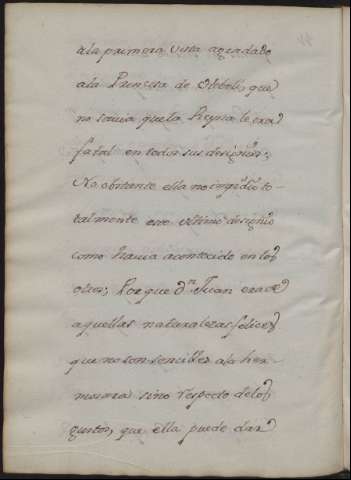 ala primera vista agradado
ala Princesa de Oboli, que
no savia que la Reyna le era
fatal en todos sus designios;
No obstante ella no impidio to-
talmente este ultimo designio
como havia acontecido en los
otros; Porque Dn. Juan era de
aquellas naturalezas felices
que no son sencibles ala her-
mosura sino respecto de los
gustos, que ella puede dar